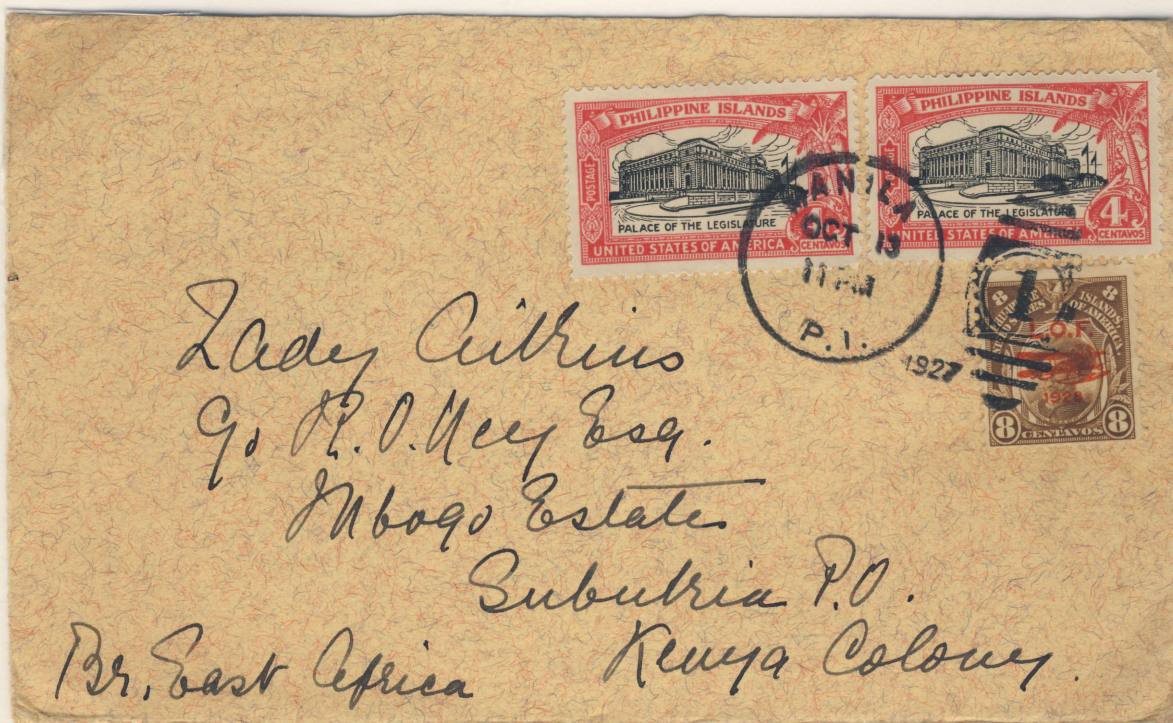 PHILIPPINE ISLANDS
POSTAGE
PALACE OF THE LEGISLATURE
4 CENTAVOS
UNITED STATES OF AMERICA
PHILIPPINE ISLANDS
POSTAGE
PALACE OF THE LEGISLATURE
4 CENTAVOS
UNITED STATES OF AMERICA
MANILA
OCT 13
11 PM
P.I.
1927
1
8 8
ISLANDS
OF AMERICA
L.O.F.
1926
8 CENTAVOS 8
Lady Aitkins
c/o R. O. Esq.
Mbogo Estates
Subukia P.O.
Kenya Colony.
Br. East Africa